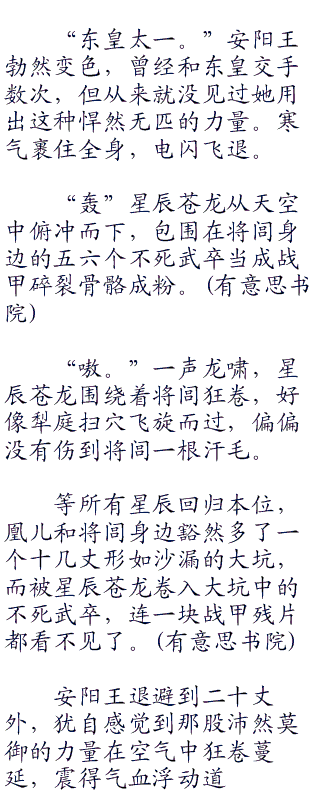 “东皇太一。”安阳王
勃然变色，曾经和东皇交手
数次，但从来就没见过她用
出这种悍然无匹的力量。寒
气裹住全身，电闪飞退。
“轰”星辰苍龙从天空
中俯冲而下，包围在将闾身
边的五六个不死武卒当成战
甲碎裂骨骼成粉。(有意思书
院)
“嗷。”一声龙啸，星
辰苍龙围绕着将闾狂卷，好
像犁庭扫穴飞旋而过，偏偏
没有伤到将闾一根汗毛。
等所有星辰回归本位，
凰儿和将闾身边豁然多了一
个十几丈形如沙漏的大坑，
而被星辰苍龙卷入大坑中的
不死武卒，连一块战甲残片
都看不见了。(有意思书院)
安阳王退避到二十丈
外，犹自感觉到那股沛然莫
御的力量在空气中狂卷蔓
延，震得气血浮动道